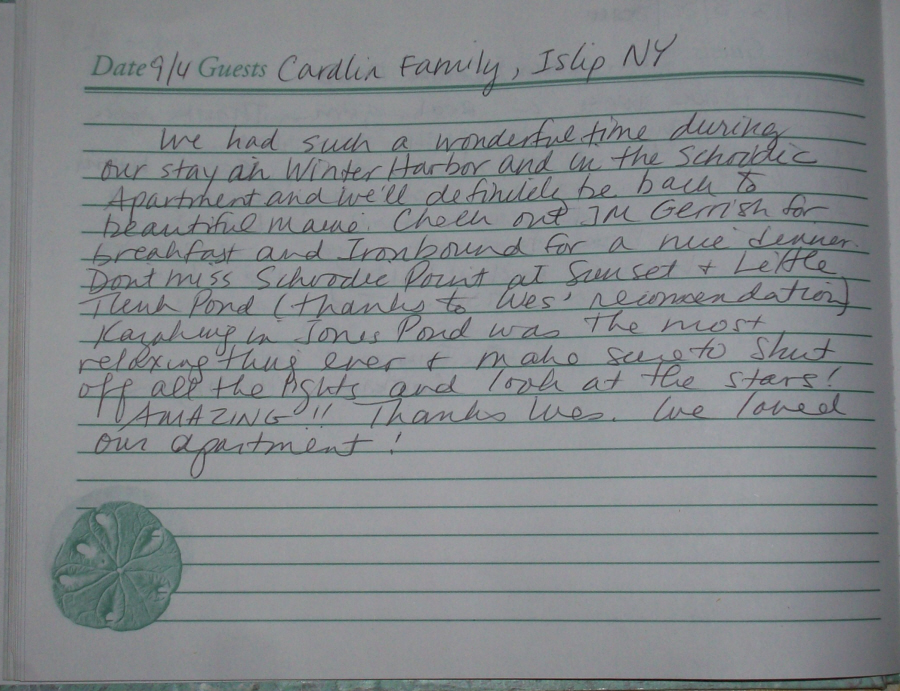 Date 9/4 Guests Cardlin Family, Islip NY
We had such a wonderful time during
our stay in Winter Harbor and in the Schoodic
Apartment and we'll definitely be back to
beautiful Maine. Check out JM Gerrish for
breakfast and Ironbound for a nice dinner.
Dont miss Schoodic Point at Sunset + Little
Tunk Pond (thanks to Wes' recomendation)
Kayaking in Jones Pond was the most
relaxing thing ever + make sure to shut
off all the lights and look at the stars!
AMAZING!! Thanks Wes. We loved
our apartment!